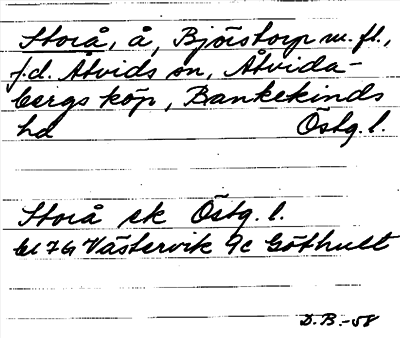 Storå, å, Björstorp m.fl.,
f.d. Åtvids sn, Åtvida-
bergs köp, Bankekinds
hd Östg. l.
Storå ek Östg. l.
bl 7G Västervik 9c Göthult
D.B.-58